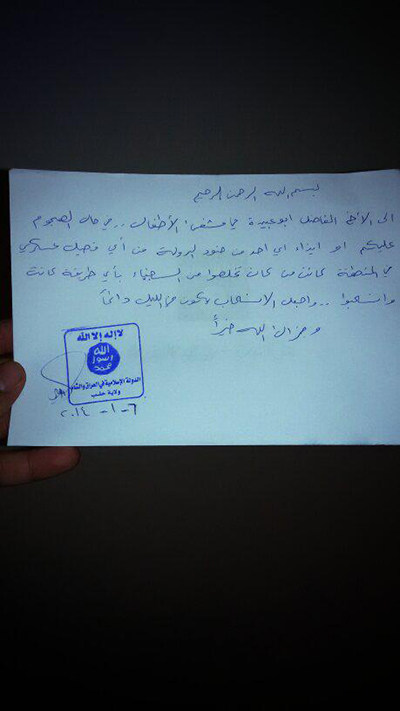 بسم الله الرحمن الرحيم
الى الأخ الفاضل ابو عبيدة في مشفى الأطفال .. في حال الهجوم
عليكم او ايذاء اي احد من جنود الدولة من أي فصيل عسكري
في المنطقة كائن من كان تخلصوا من السجناء بأي طريقة كانت
وانسحبوا .. واجعل الانسحاب يكون في الليل دائماً
وجزاك الله خيراً
لا إله إلا الله
الله
رسول
محمد
الدولة الإسلامية في العراق والشام
ولاية حلب
٢٠١٤ - ١ - ٦